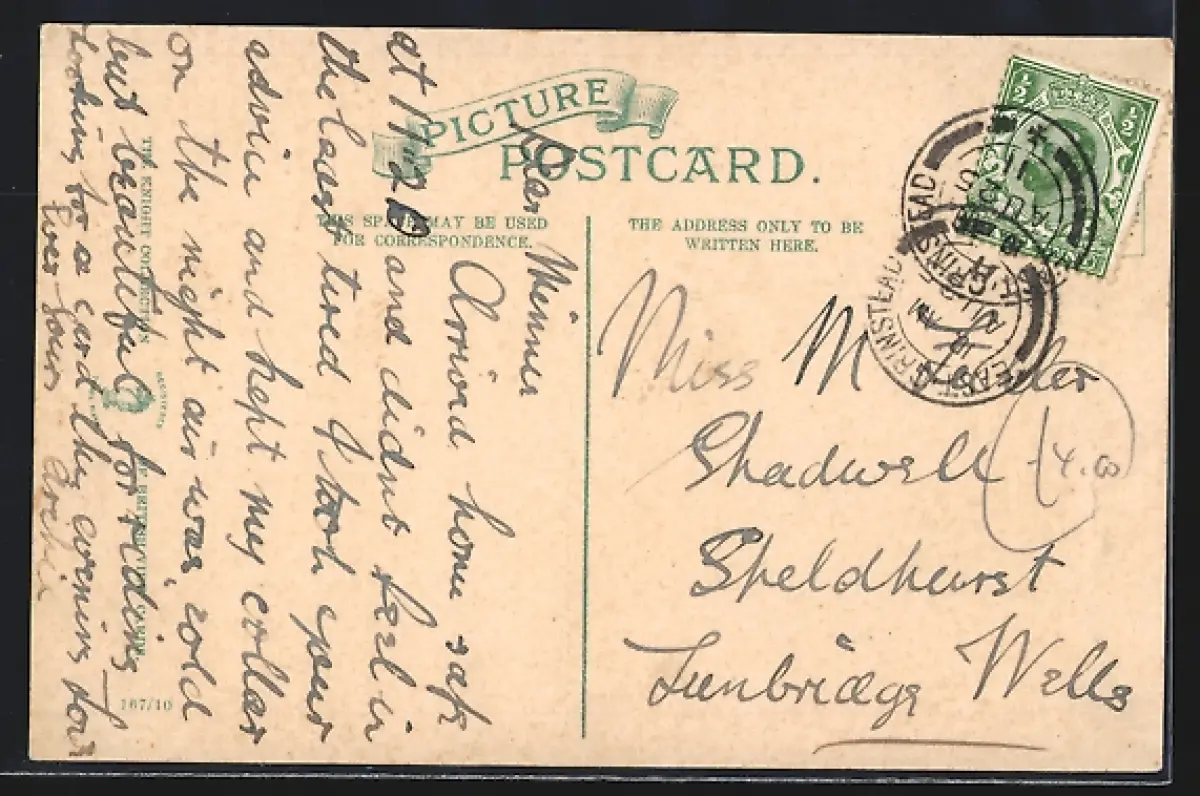 PICTURE
POSTCARD.
THIS SPACE MAY BE USED
FOR CORRESPONDENCE.
THE ADDRESS ONLY TO BE
WRITTEN HERE.
Dear Minnie
Arrived home safe
at 11.20 and didnt feel in
the least tired I took your
advice and kept my collar
on the night air was cold
but beautiful for riding
looking for a card this evening
Archie
Miss M
Shadwell
Speldhurst
Tunbridge Wells
EAST GRINSTEAD
AU 2
11
THE KNIGHT COLLECTION
767/10
½ ½